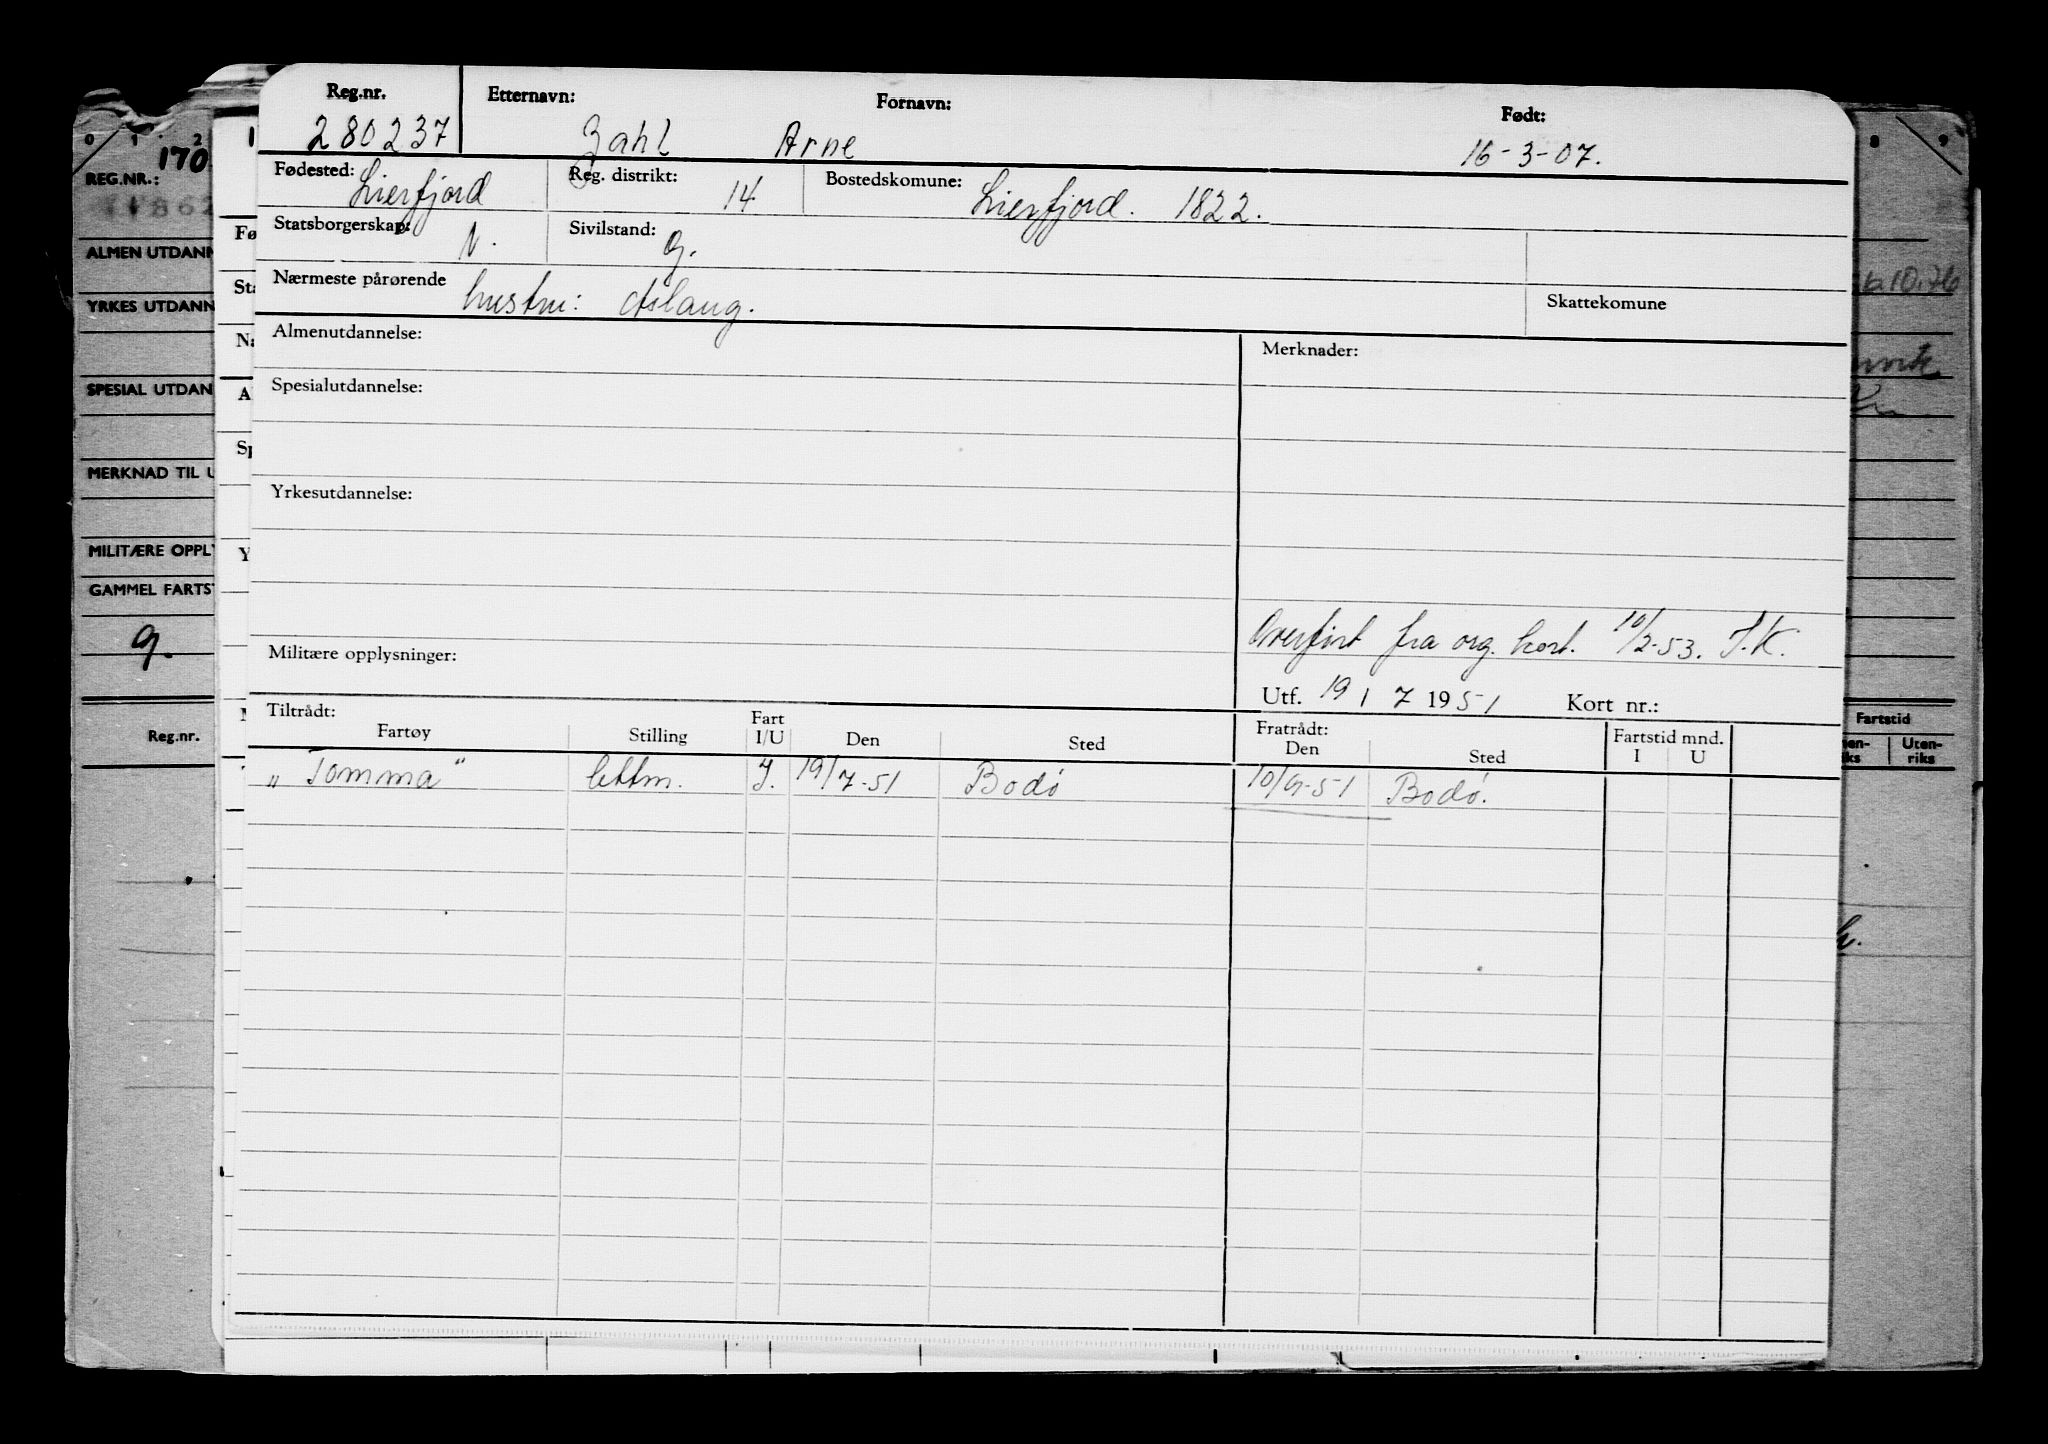 Reg.nr. Etternavn: Fornavn: Født:
280237 Zahl Arne 16-3-07.
Fødested: Leirfjord Reg. distrikt: 14 Bostedskomune: Leirfjord. 1822.
Statsborgerskap: N. Sivilstand: g.
Nærmeste pårørende hustru: Aslaug. Skattekomune
Almenutdannelse: Merknader:
Spesialutdannelse:
Yrkesutdannelse:
Overført fra org. kort. 10/2-53. J.K.
Militære opplysninger:
Utf. 19 / 7 1951 Kort nr.:
Tiltrådt: Fratrådt:
Fartøy Stilling Fart I/U Den Sted Den Sted Fartstid mnd. I U
„Tomma" lettm. I. 19/7-51 Bodø 10/9-51 Bodø.
0 1 2
170
REG.NR.:
ALMEN UTDANN
YRKES UTDANN
SPESIAL UTDAN
MERKNAD TIL U
MILITÆRE OPPLY
GAMMEL FARTST
g.
Reg.nr.
Fø
Sta
Na
A
Sp
Y
8 9
10.76
Fartstid
Uten-
riks